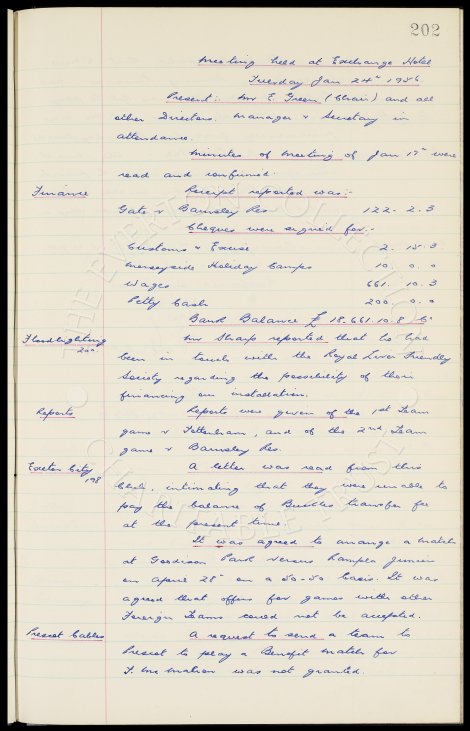 202
Meeting held at Exchange Hotel
Tuesday Jan 24th 1956
Present:. Mr E. Green (Chair) and all
other Directors. Manager & Secretary in
attendance.
Minutes of meeting of Jan 17th were
read and confirmed.
Finance Receipt reported was:-
Gate v Barnsley Res 122. 2. 3
Cheques were signed for:-
Customs & Excise 2. 15. 3
Merseyside Holiday Camps 10. 0. 0
Wages 661. 10. 3
Petty Cash 200. 0. 0
Bank Balance £ 18.661.10.8
Floodlighting Mr Sharp reported that he had
200 been in touch with the Royal Liver Friendly
Society regarding the possibility of their
financing our installation.
Reports Reports were given of the 1st Team
game v Tottenham, and of the 2nd Team
game v Barnsley Res.
Exeter City A letter was read from this
198 Club, intimating that they were unable to
pay the balance of transfer fee
at the present time.
It was agreed to arrange a match
at Goodison Park versus
on April 28th on a 50-50 basis. It was
agreed that offers for games with other
Foreign Teams could not be accepted.
Prescot Cables A request to send a team to
Prescot to play a Benefit Match for
was not granted.
THE EVERTON COLLECTION
CHARITABLE TRUST